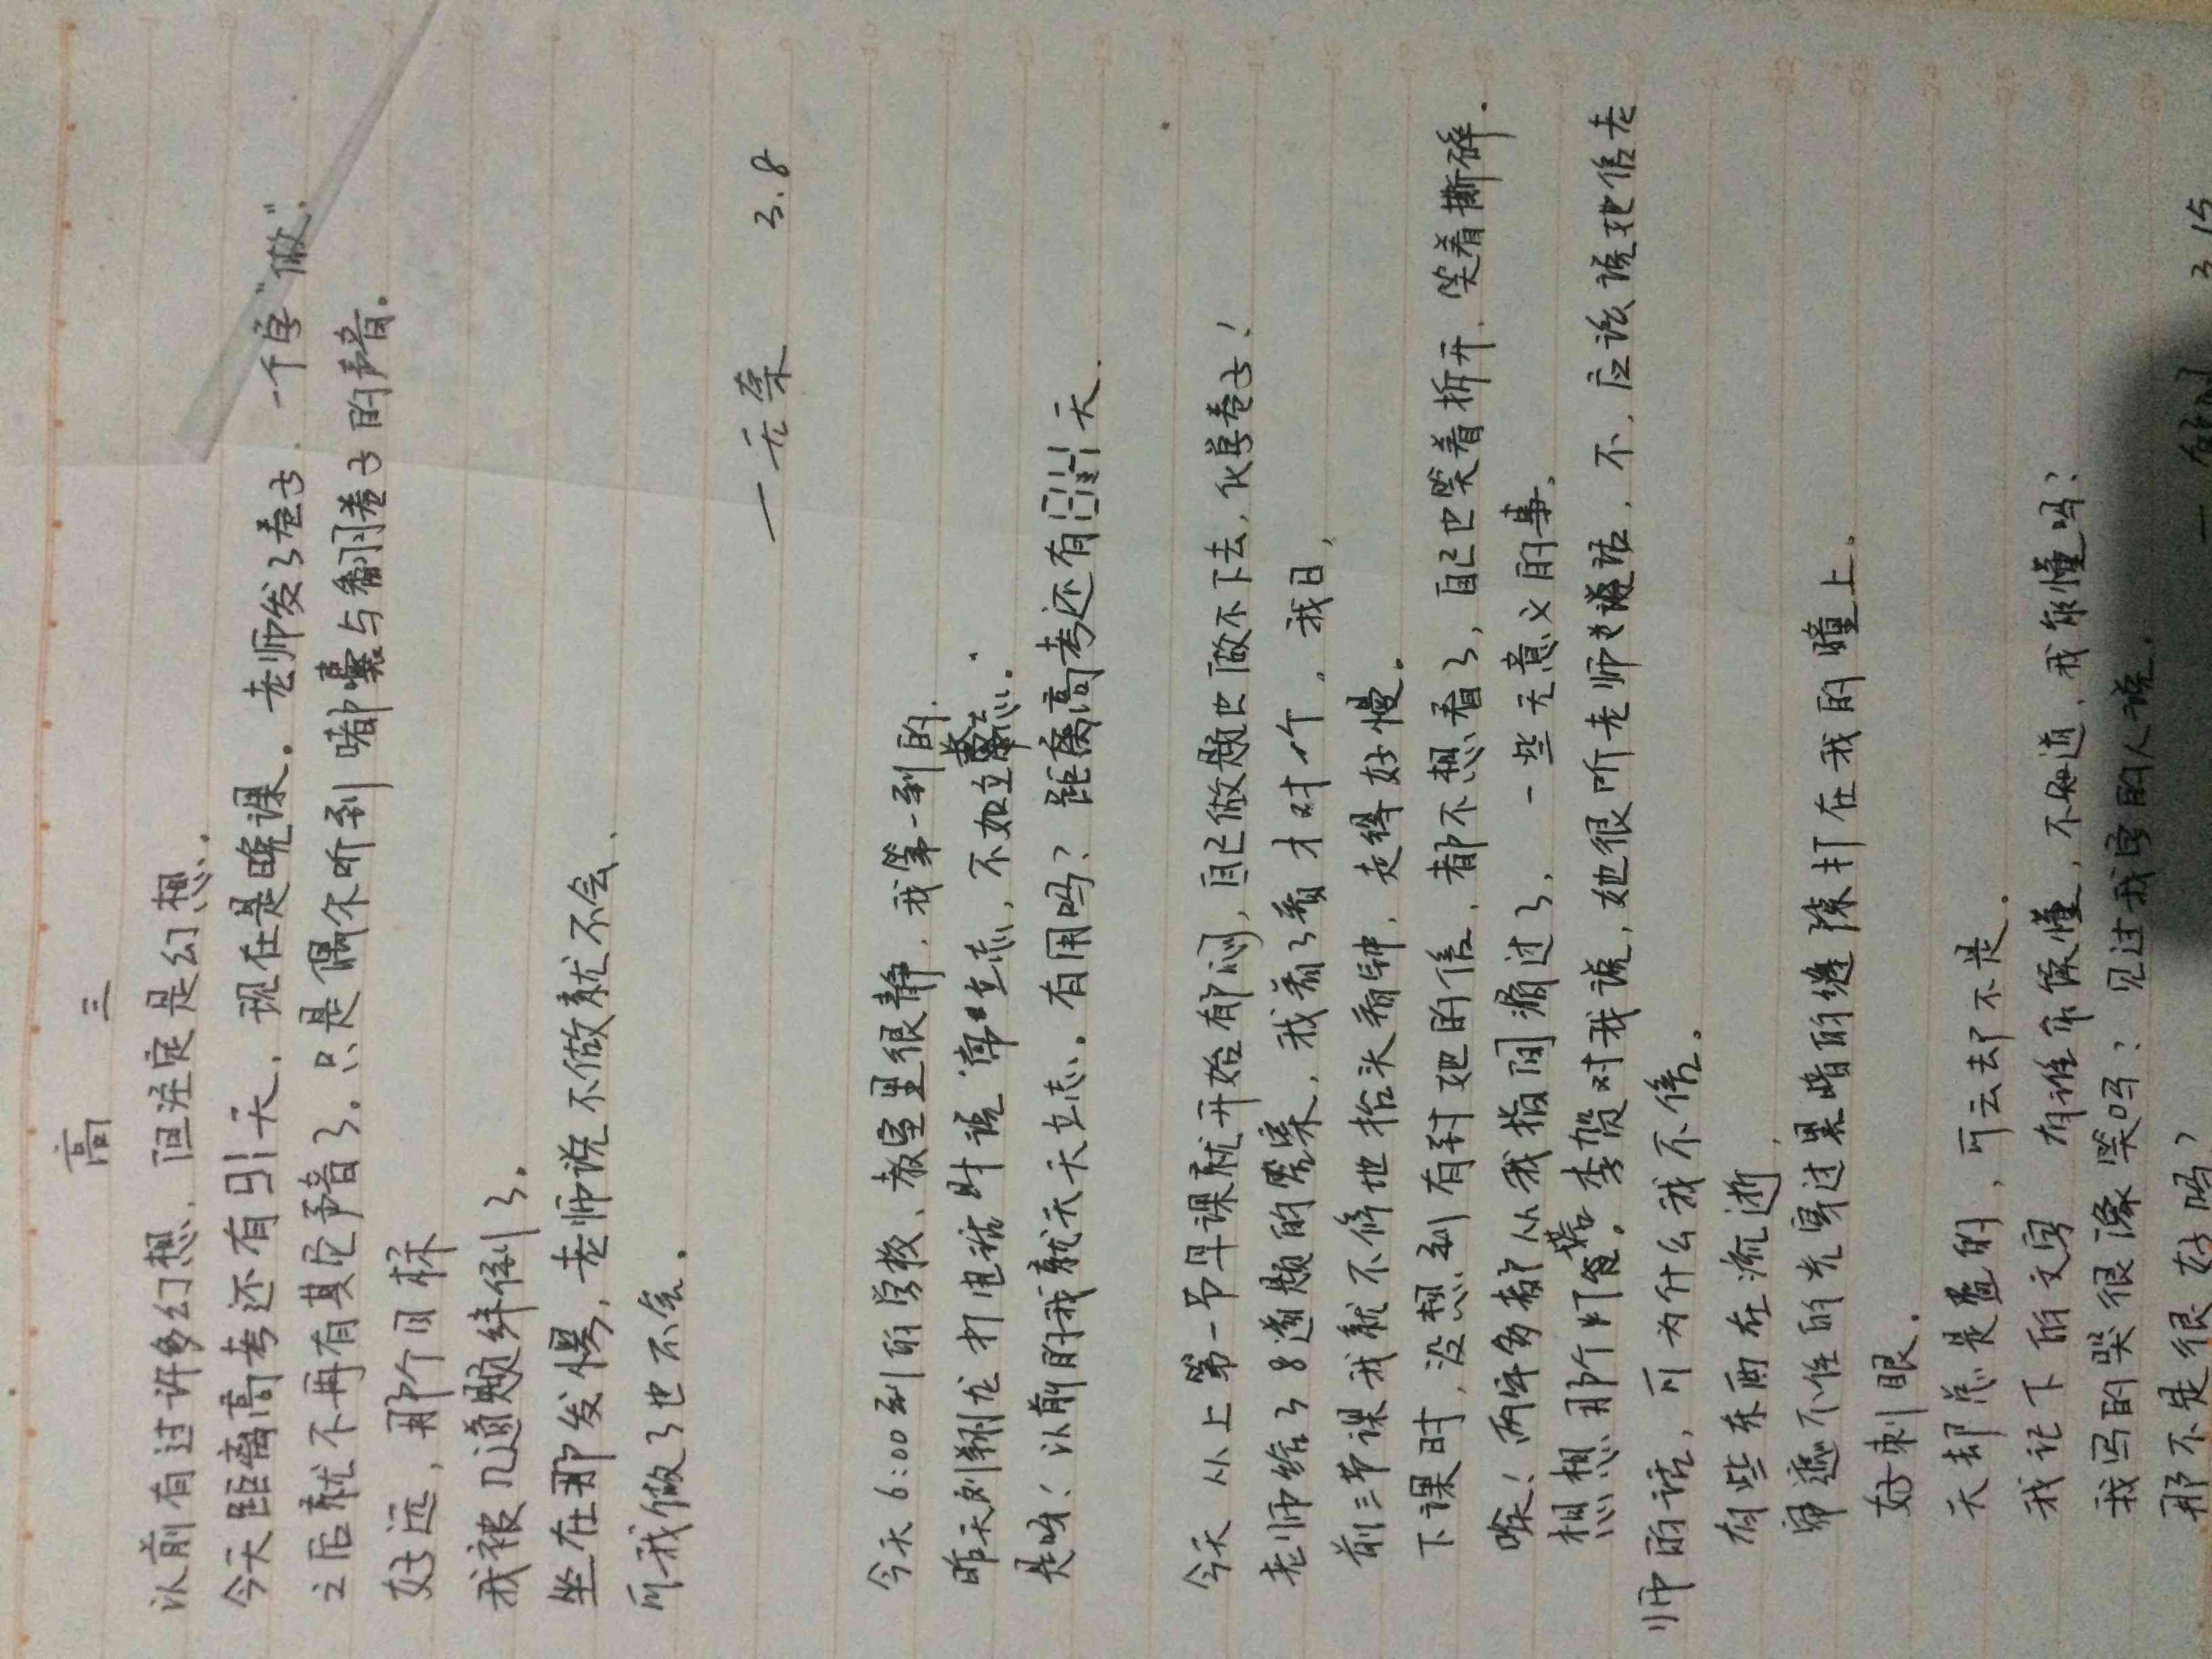 高 三
以前有过许多幻想，但注定是幻想。
今天距离高考还有91天，现在是晚课。老师发了卷子，一个字"做"。
之后就不再有其它声音了。只是偶尔听到嘟囊与翻卷子的声音。
好远，那个目标
我被几道题绊倒了。
坐在那发愣，老师说不做就不会，
可我做了也不会。
—无奈 3.8
今天6:00到的学校、教室里很静，我第一到的，
昨天刘翔龙打电话时说"常立志，不如立长志。"
是呀！以前的我就天天立志。有用吗？距离高考还有84天．
今天 从上第一节早课就开始郁闷，自己做题也做不下去，化学卷子！
老师给了8道题的答案，我看了看才对1个。我日，
前三节课我就不停地抬头看钟，走得好慢。
下课时，没想到有封她的信，都不想看了，自己也笑着拆开，笑着撕碎．
唉！两年多都从我指间溜过了，一些无意义的事。
想想那个灯塔。李贺对我说，她很听老师话，不，应该说她信老
师的话，可为什么我不信。
有些东西在流逝，
帘遮不住的光穿过黑暗的缝隙打在我的瞳上。
好刺眼．
天却总是蓝的，可云却不是．
我记下的文字 有谁能读懂，不知道，我能懂吗？
我写的哭很像笑吗？见过我字的人说．
那不是很好吗？
— 3.15